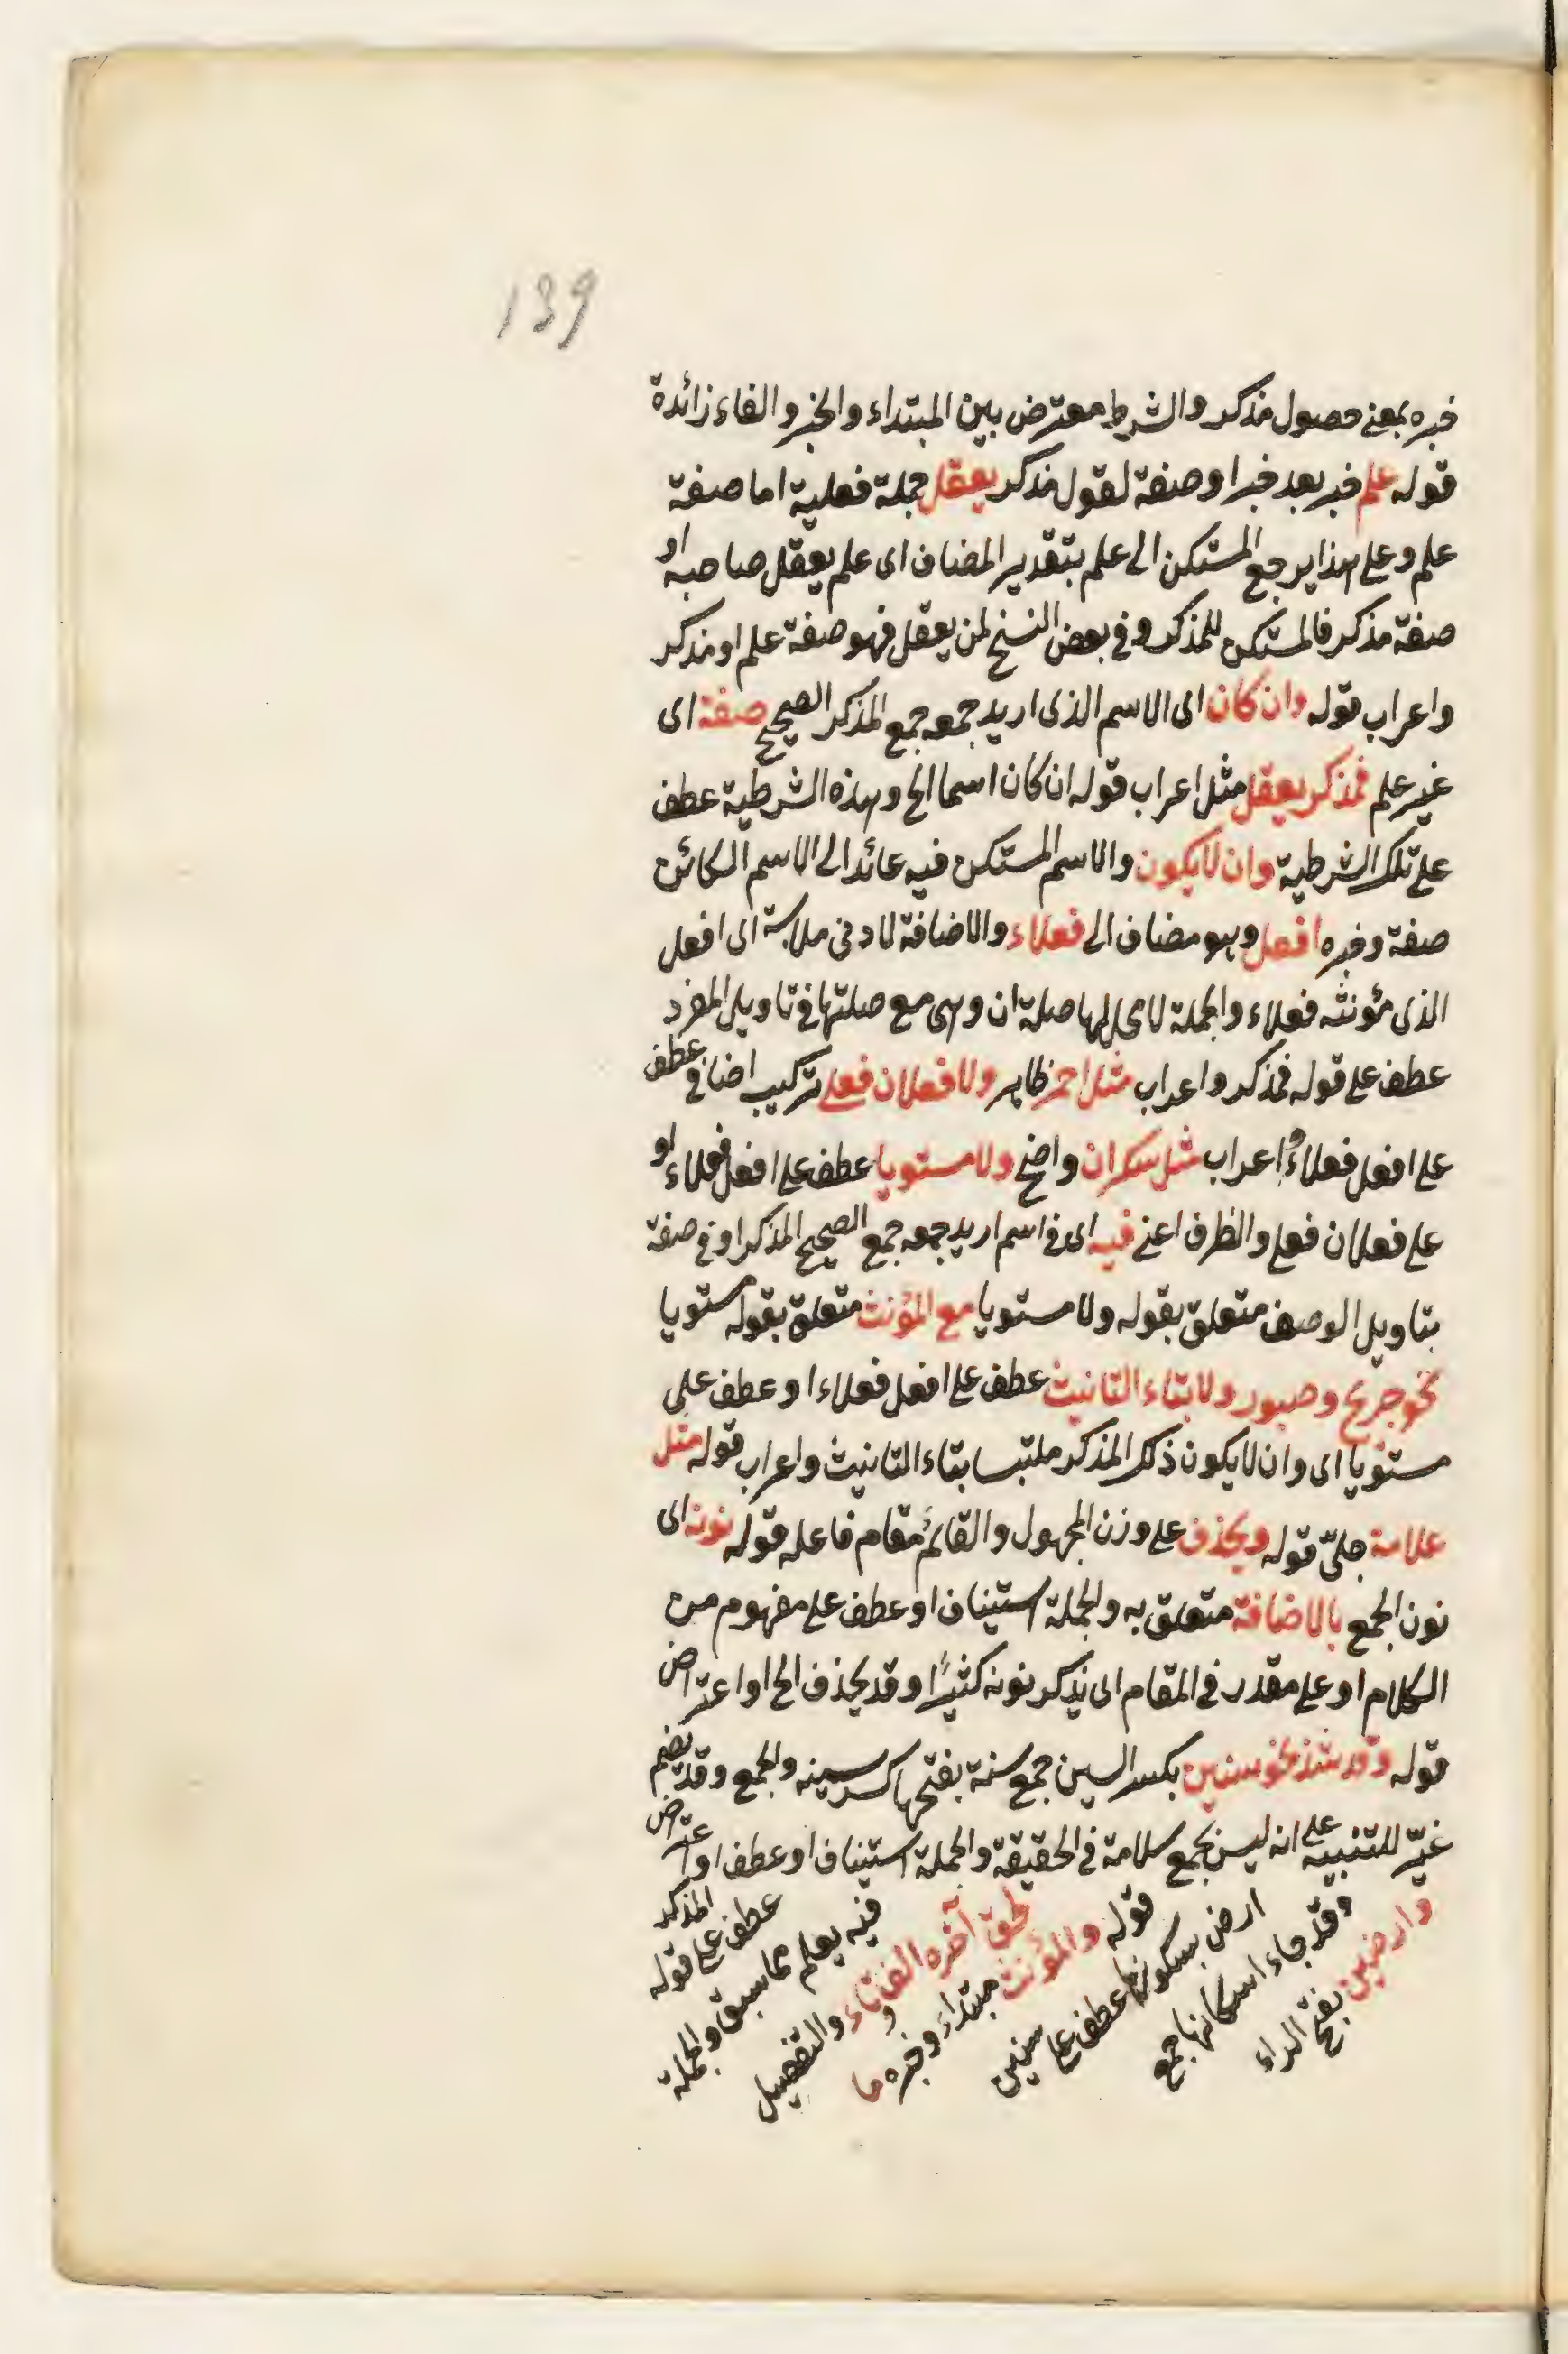 139
خبره بمعنى حصول مذكر والشرط معترض بين المبتداء والخبر والفاء زائدة
قوله علم خبر بعد خبر او صفة لقول مذكر يعقل جملة فعلية اما صفة
علم وعلى هذا يرجع المستكن الى علم بتقدير المضاف اى علم يعقل صاحبه او
صفة مذكر فالمستكن للمذكر وفى بعض النسخ لمن يعقل فهو صفة علم او مذكر
واعراب قوله وان كان اى الاسم الذى اريد جمعه جمع المذكر الصحيح صفة اى
غير علم فمذكر يعقل مثل اعراب قوله ان كان اسما الخ وهذه الشرطية عطف
على تلك الشرطية وان لا يكون والاسم المستكن فيه عائد الى الاسم الكائن
صفة وخبره افعل وهو مضاف الى فعلاء والاضافة لادنى ملابسة اى افعل
الذى مؤنثه فعلاء والجملة لا محل لها صلة ان وهى مع صلتها فى تاويل المفرد
عطف على قوله فمذكر واعراب مثل احمر ظاهر ولا فعلان فعلى تركيب اضافى عطف
على افعل فعلاء واعراب مثل سكران واضح ولا مستويا عطف على افعل فعلاء او
على فعلان فعلى والظرف اعنى فيه اى فى اسم اريد جمعه جمع الصحيح المذكر او فى صفة
بتاويل الوصف متعلق بقوله ولا مستويا مع المؤنث متعلق بقوله مستويا
نحو جريح وصبور ولا بتاء التانيث عطف على افعل فعلاء او عطف على
مستويا اى وان لا يكون ذلك المذكر ملتبسا بتاء التانيث واعراب قوله مثل
علامة جلىّ قوله ويحذف على وزن المجهول والقائم مقام فاعله قوله نونه اى
نون الجمع بالاضافة متعلق به والجملة استيناف او عطف على مفهوم من
الكلام او على مقدر فى المقام اى يذكر نونه كثيرًا وقد يحذف الخ او اعتراض
قوله وقد شذ نحو سنين بكسر السين جمع سنة بفتحها كسر سينه والجمع وقد يضم
غيّر للتنبيه على انه ليس بجمع سلامة فى الحقيقة والجملة استيناف او عطف او اعتراض
وارضين بفتح الراء
وقد جاء اسكانها جمع
ارض بسكونها عطف على سنين
قوله والمؤنث مبتداء وخبره ما
لحق آخره الف وتاء والتفصيل
فيه يعلم مما سبق والجملة
عطف على قوله
المذكر